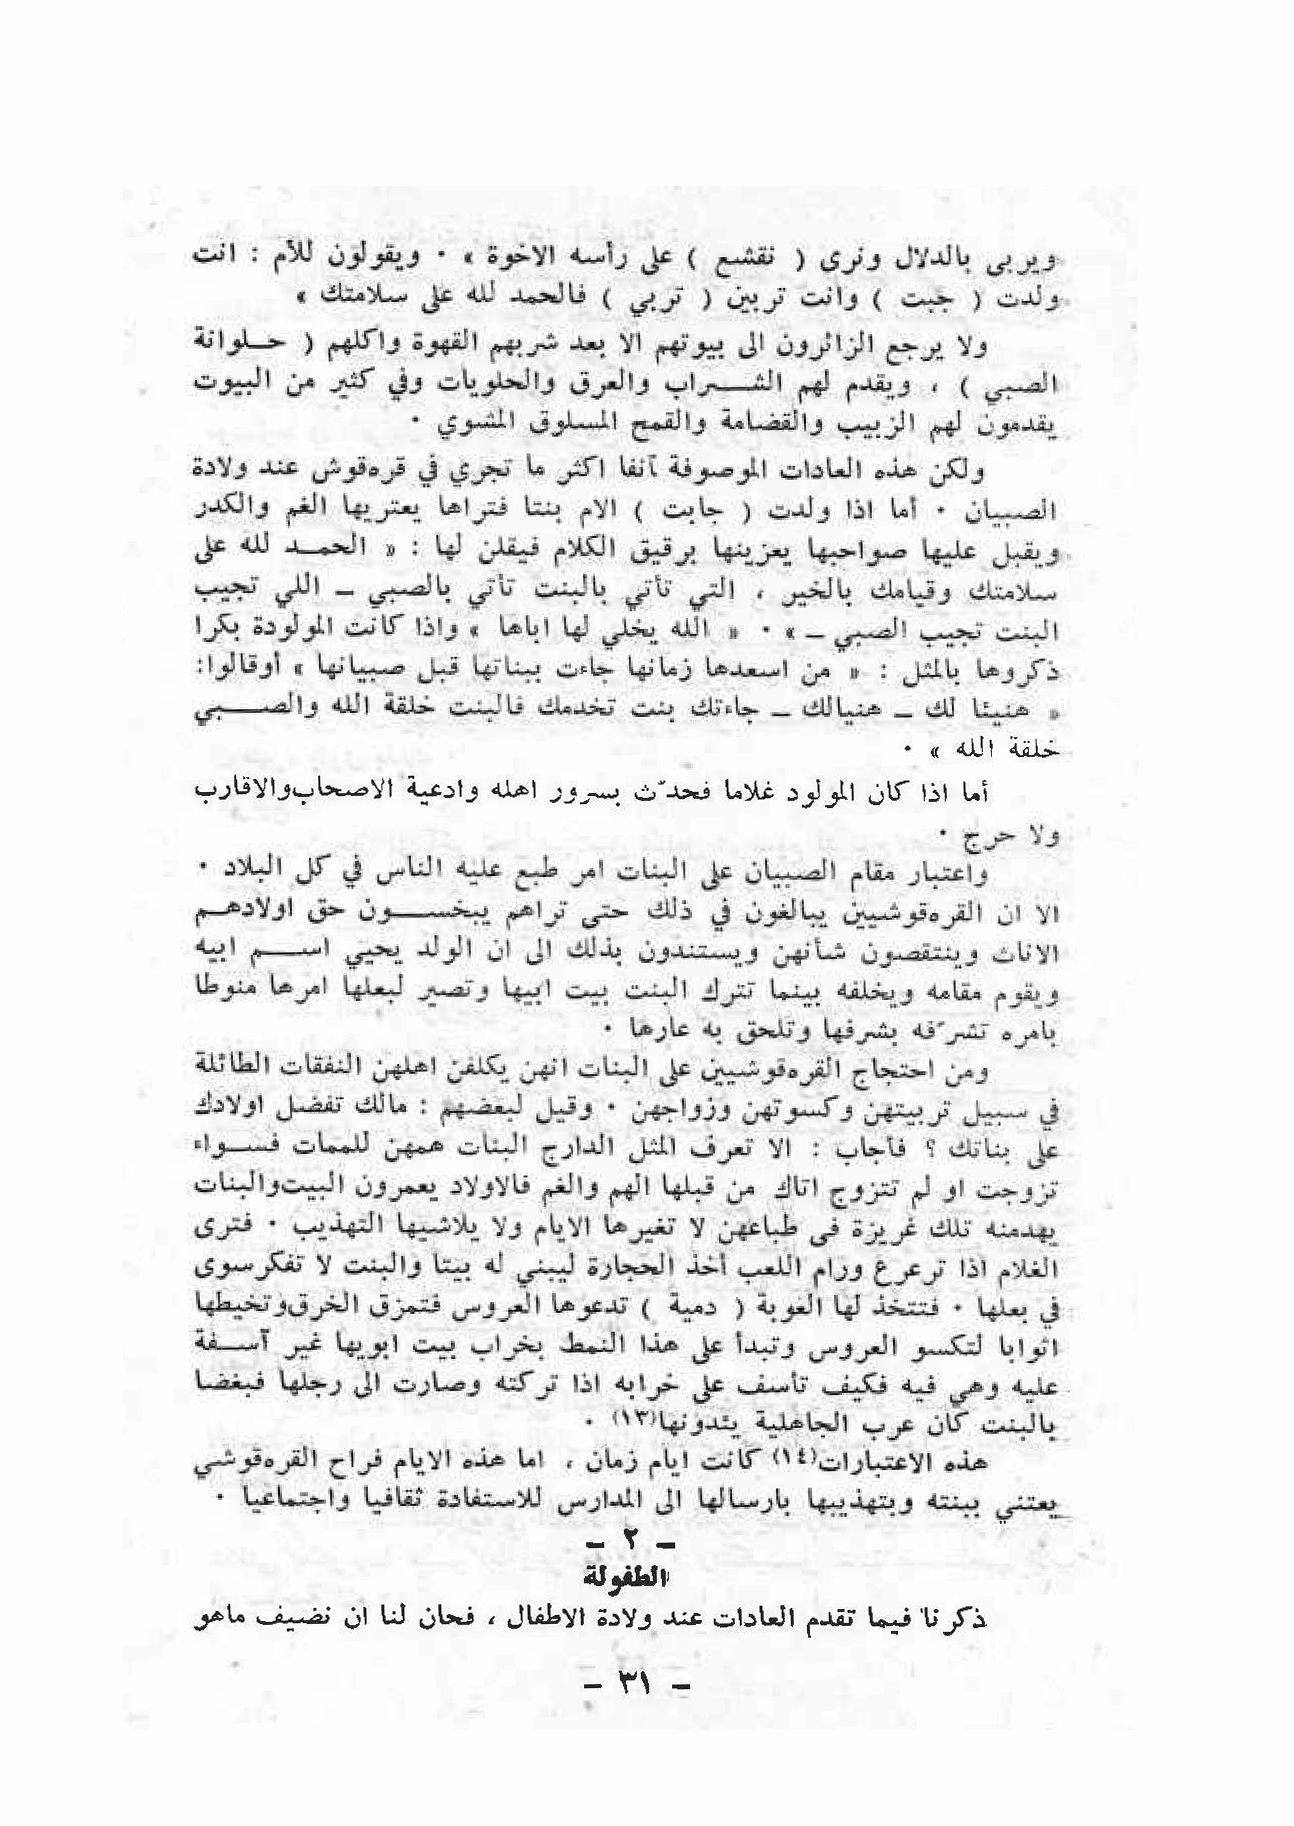 ويربى بالدلال ونرى ( نقشع ) على رأسه الاخوة » ٠ ويقولون للأم : انت
ولدت ( جبت ) وانت تربين ( تربي ) فالحمد لله على سلامتك »
ولا يرجع الزائرون الى بيوتهم الا بعد شربهم القهوة واكلهم ( حلوانة
الصبي ) ، ويقدم لهم الشراب والعرق والحلويات وفي كثير من البيوت
يقدمون لهم الزبيب والقضامة والقمح المسلوق المشوي ٠
ولكن هذه العادات الموصوفة آنفا اكثر ما تجري في قره‌قوش عند ولادة
الصبيان ٠ أما اذا ولدت ( جابت ) الام بنتا فتراها يعتريها الغم والكدر
ويقبل عليها صواحبها يعزينها برقيق الكلام فيقلن لها : « الحمد لله على
سلامتك وقيامك بالخير ، التي تأتي بالبنت تأتي بالصبي – اللي تجيب
البنت تجيب الصبي – » ٠ « الله يخلي لها اباها » واذا كانت المولودة بكرا
ذكروها بالمثل : « من اسعدها زمانها جاءت ببناتها قبل صبيانها » أوقالوا:
« هنيئا لك – هنيالك – جاءتك بنت تخدمك فالبنت خلقة الله والصبي
خلقة الله » ٠
أما اذا كان المولود غلاما فحدّث بسرور اهله وادعية الاصحاب والاقارب
ولا حرج ٠
واعتبار مقام الصبيان على البنات امر طبع عليه الناس في كل البلاد ٠
الا ان القره‌قوشيين يبالغون في ذلك حتى تراهم يبخسون حق اولادهم
الاناث وينتقصون شأنهن ويستندون بذلك الى ان الولد يحيي اسم ابيه
ويقوم مقامه ويخلفه بينما تترك البنت بيت ابيها وتصير لبعلها امرها منوطا
بامره تشرّفه بشرفها وتلحق به عارها ٠
ومن احتجاج القره‌قوشيين على البنات انهن يكلفن اهلهن النفقات الطائلة
في سبيل تربيتهن وكسوتهن وزواجهن ٠ وقيل لبعضهم : مالك تفضل اولادك
على بناتك ؟ فأجاب : الا تعرف المثل الدارج البنات همهن للممات فسواء
تزوجت او لم تتزوج اتاك من قبلها الهم والغم فالاولاد يعمرون البيت والبنات
يهدمنه تلك غريزة فى طباعهن لا تغيرها الايام ولا يلاشيها التهذيب ٠ فترى
الغلام اذا ترعرع ورام اللعب أخذ الحجارة ليبني له بيتا والبنت لا تفكر سوى
في بعلها ٠ فتتخذ لها العوبة ( دمية ) تدعوها العروس فتمزق الخرق وتخيطها
اثوابا لتكسو العروس وتبدأ على هذا النمط بخراب بيت ابويها غير آسفة
عليه وهي فيه فكيف تأسف على خرابه اذا تركته وصارت الى رجلها فبغضا
بالبنت كان عرب الجاهلية يئدونها(١٣) ٠
هذه الاعتبارات(١٤) كانت ايام زمان ، اما هذه الايام فراح القره‌قوشي
يعتني ببنته وبتهذيبها بارسالها الى المدارس للاستفادة ثقافيا واجتماعيا ٠
– ٢ –
الطفولة
ذكرنا فيما تقدم العادات عند ولادة الاطفال ، فحان لنا ان نضيف ماهو
– ٣١ –